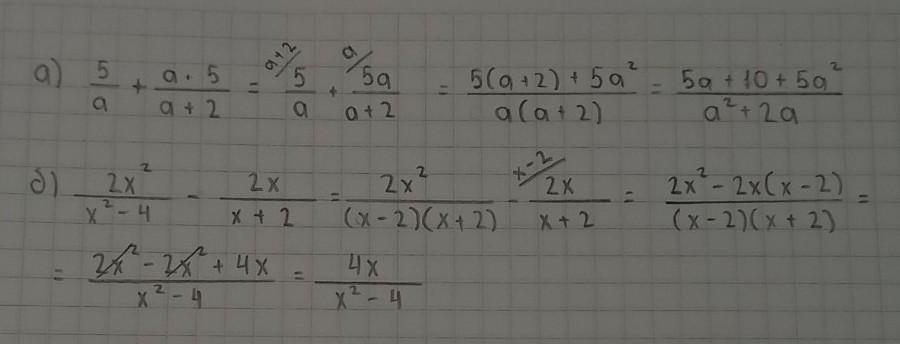 а) 5/a + a · 5/a + 2 = a+2/ 5/a + a/ 5a/a + 2 = 5(a+2) + 5a²/a(a+2) = 5a + 10 + 5a²/a² + 2a
б) 2x²/x² - 4 - 2x/x + 2 = 2x²/(x-2)(x+2) - x-2/ 2x/x + 2 = 2x² - 2x(x-2)/(x-2)(x+2) =
= 2x² - 2x² + 4x/x² - 4 = 4x/x² - 4